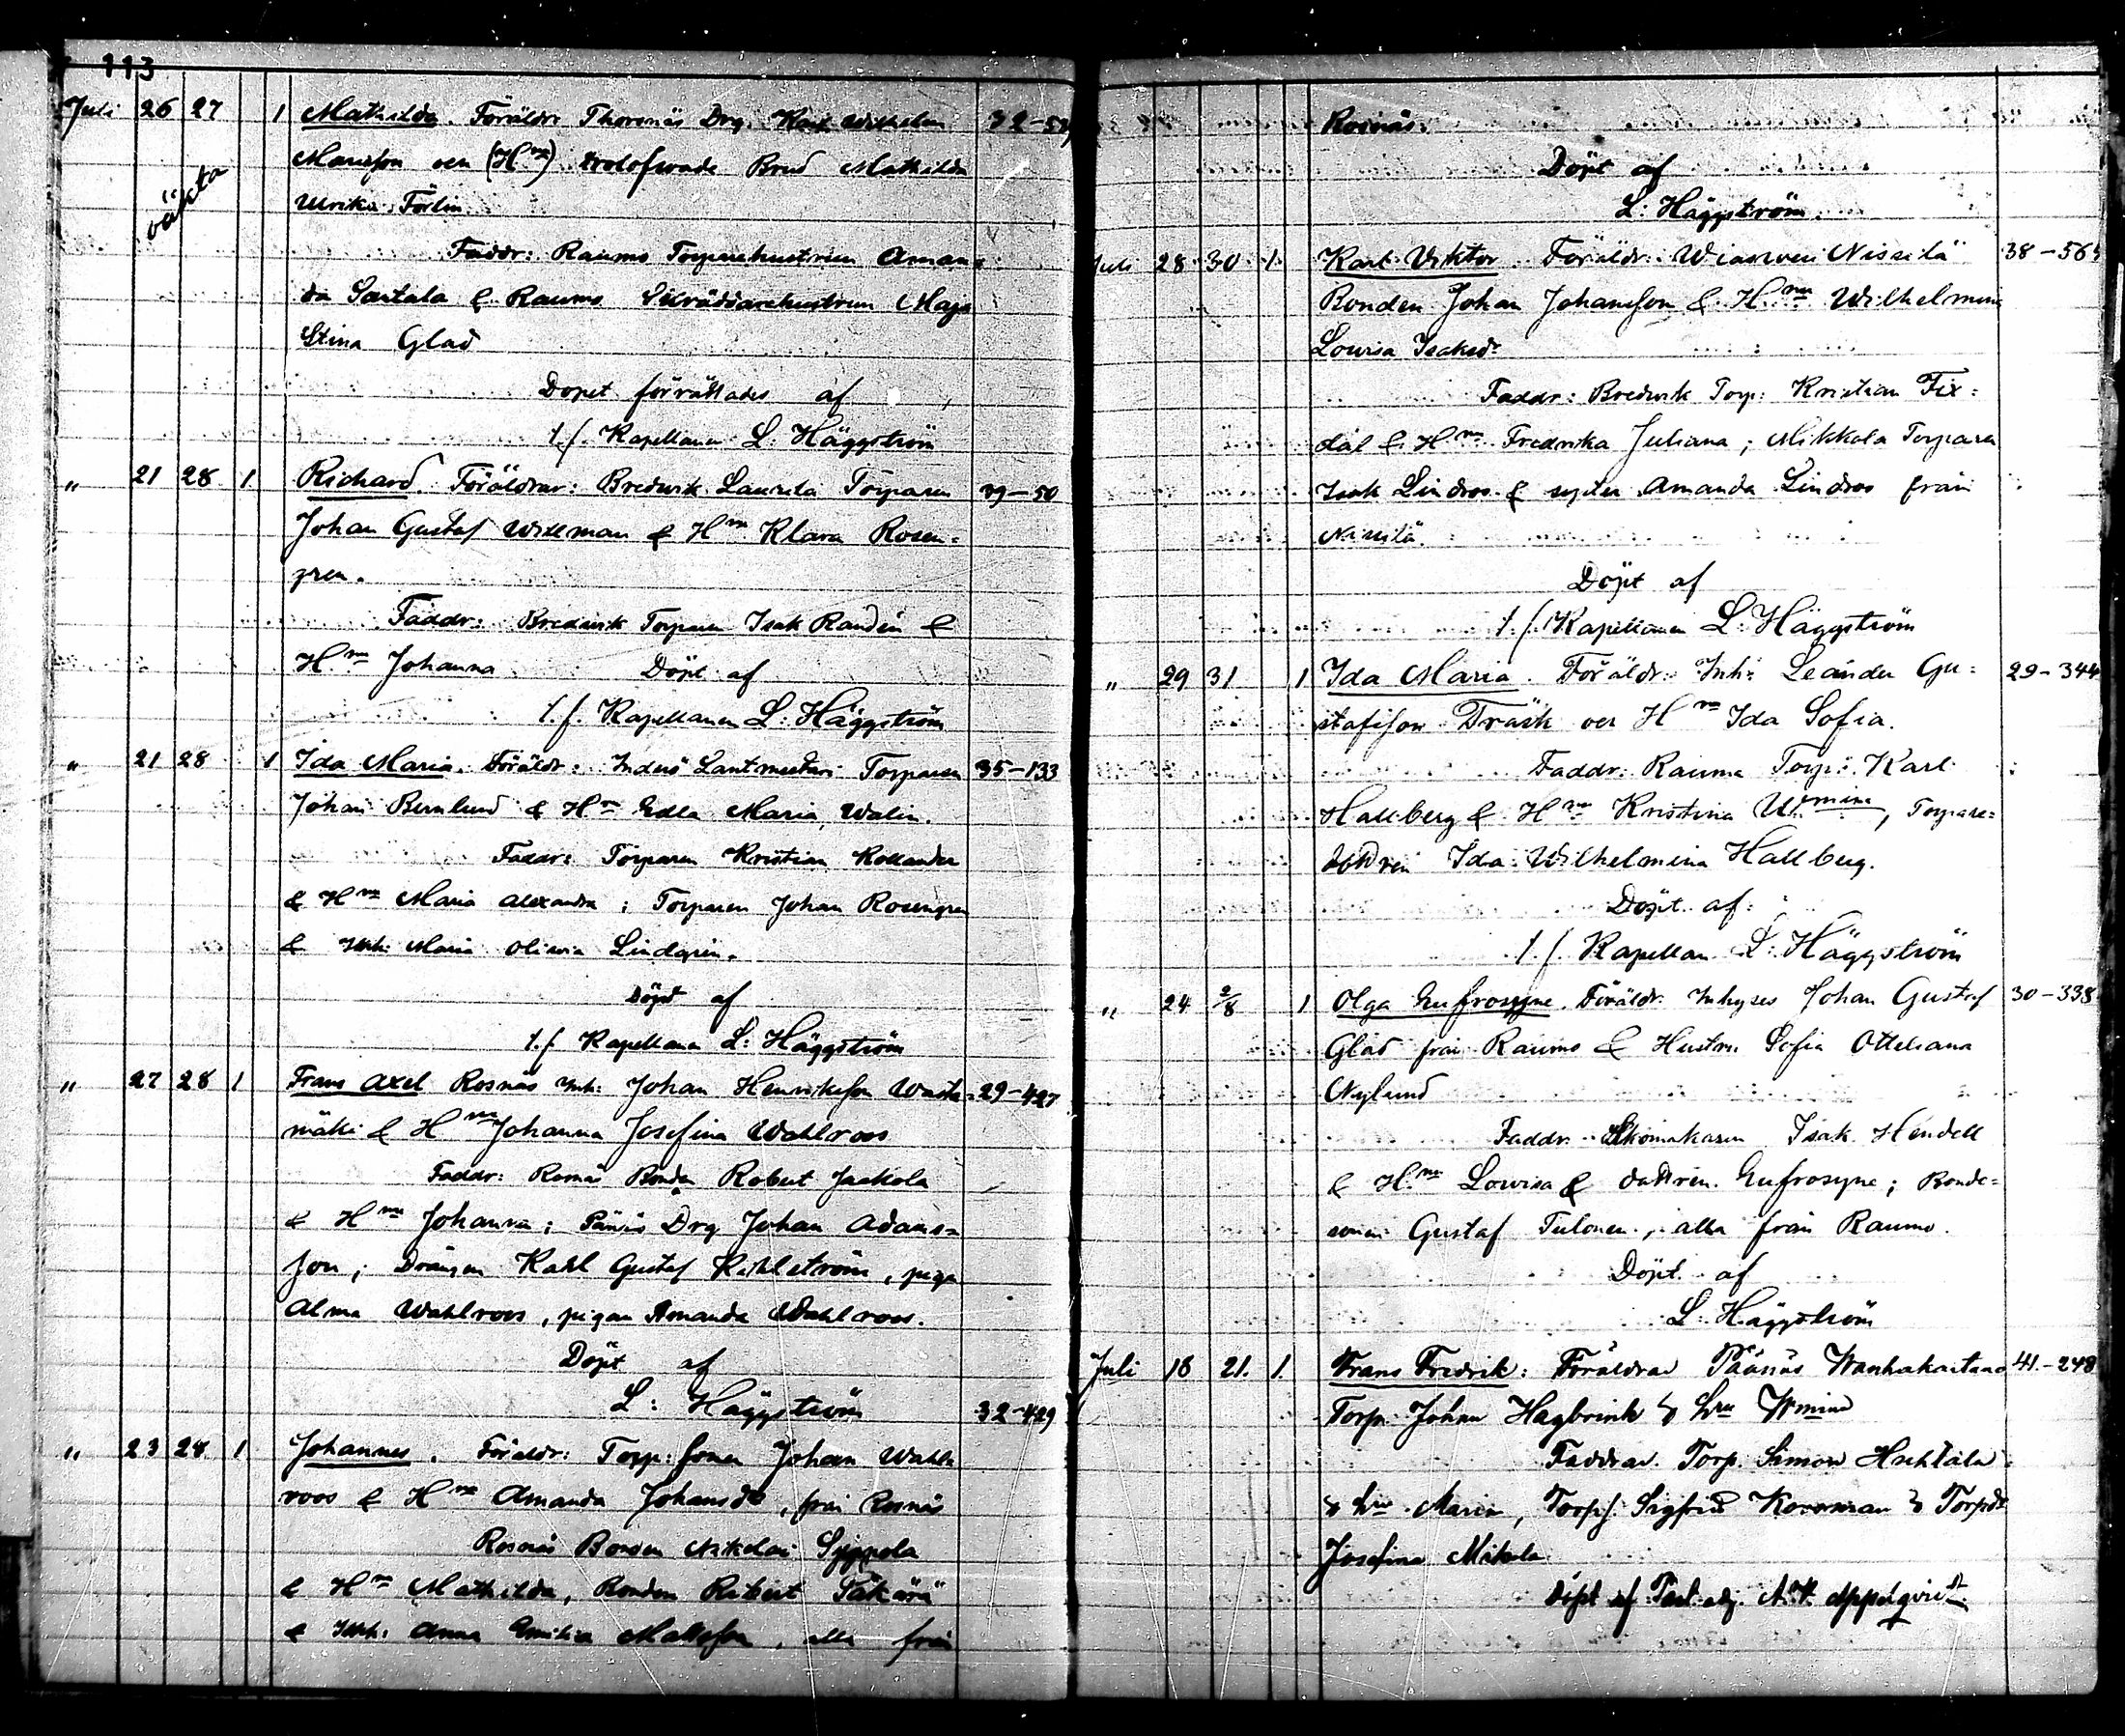 113
Juli 26 27 1 Mathilda. Föräldr: Thorsnäs Drg. Karl Wilhelm 32-
Mariesson och (Hru) trolofvade Brud Mathilda
oäkta
Ulrika Förlin.
Faddr: Raumo Torparehustrun Aman=
da Santala & Raumo hustrun Maja
Stina Glad
Dopet förrättades af
t.f. Kapellanen L: Häggström
" 21 28 1 Richard. Föräldrar: Bredvik Laurila Torparen 39-50
Johan Gustaf Willman & Hru Klara Rosen=
gren.
Faddr: Bredvik Torparen Isak Randén &
Hru Johanna Döpt af
t.f. Kapellanen L: Häggström
" 21 28 1 Ida Maria. Föräldr: Inderö Lantmesteri Torparen 35-133
Johan Bernlund & Hru Edla Maria Walin.
Faddr: Torparen Kristian Kollander
& Hru Maria Alexandra; Torparen Johan Rosengren
& Inh: Maria Olivia Lindgrén.
Döpt af
t.f. Kapellanen L: Häggström
" 27 28 1 Frans Axel Rosnäs Inh: Johan Henriksson Wasta= 29-427
mäki & Hru Johanna Josefina Wahlroos
Faddr: Rosnäs Bonden Robert Jaakola
& Hru Johanna; Pänäs Drg Johan Adams=
son; Drängen Karl Gustaf Kihlström, piga
Alma Wahlroos, pigan Amanda Wahlroos.
Döpt af
L: Häggström
32-429
" 23 28 1 Johannes. Föräldr: Torp: sonen Johan Wahl
roos & Hru Amanda Johansdr, från Rosnäs
Rosnäs Bonden Nikolai Sjöppola
& Hru Mathilda, Bonden Robert
& Inh: Anna Emilia Matsson, alla från
Rosnäs.
Döpt af
L: Häggström.
Juli 28 30 1 Karl Viktor. Föräldr: Wiasvesi Nissilä 38-565
Bonden Johan Johansson & Hru Wilhelmina
Lovisa Isaksdr
Faddr: Bredvik Torp: Kristian Fix=
dal & Hru Fredrika Juliana; Mikkola Torparen
Isak Lindros & syster Amanda Lindros från
Nissilä.
Döpt af
t.f. Kapellanen L: Häggström
" 29 31 1 Ida Maria. Föräldr: Inh: Leander Gu= 29-344
stafsson Träsk och Hru Ida Sofia.
Faddr: Raumo Torp: Karl
Hallberg & Hru Kristina Wmina, Torpare=
dottren Ida Wilhelmina Hallberg.
Döpt af:
t.f. Kapellan L: Häggström
" 24 2/8 1 Olga Eufrosyne. Föräldr: Inhyses Johan Gustaf 30-338
Glad från Raumo & Hustru Sofia Otteliana
Nylund
Faddr: Skomakaren Isak Hendell
& Hru Lovisa & dottren Eufrosyne; Bonde=
sonen Gustaf Tulonen, alla från Raumo.
Döpt af
L: Häggström
Juli 18 21. 1. Frans Fredrik: Föräldrar Päänäs Wanhakartano 41.-248
Torp. Johan Hagbrink & Hru Wmina
Faddrar. Torp. Simon Huhtala
& Hru Maria, Torps. Sigfrid Korsman & Torpdr
Josefina Mikola
Döpt af Past: adj. A.K. Appelqvist.